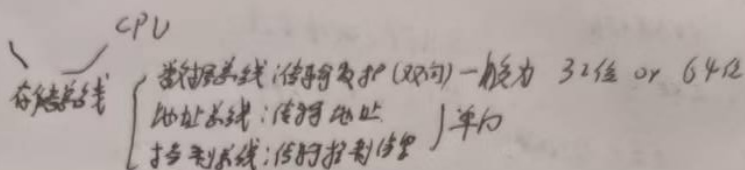 CPU
存储总线
数据总线:传输数据(双向)一般为 32位 or 64位
地址总线:传输地址
控制总线:传输控制信号
单向